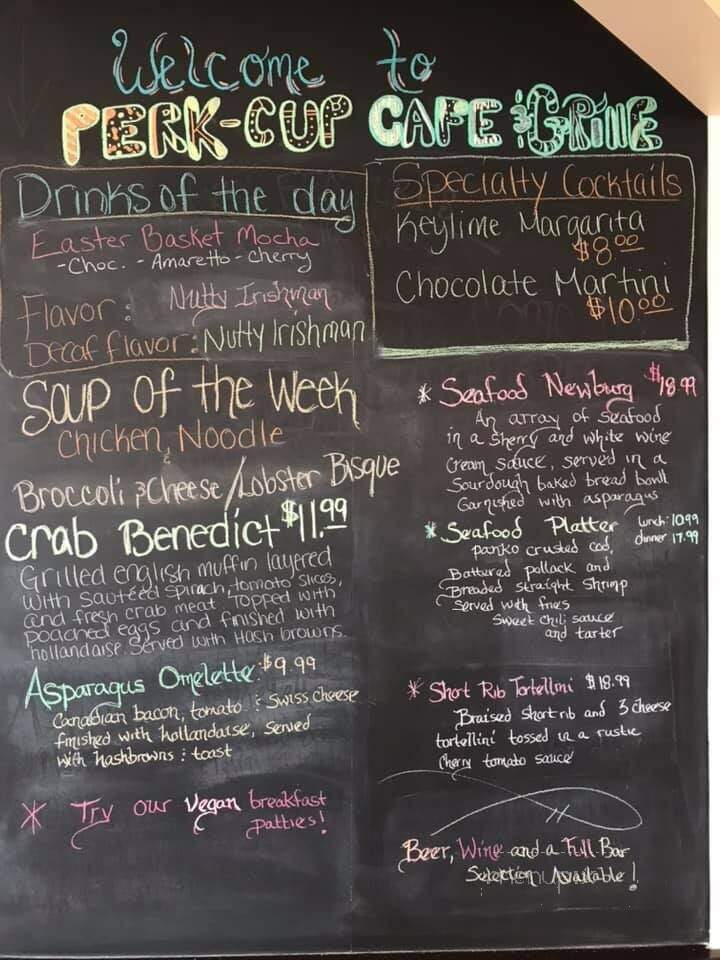 Welcome to
PERK-CUP CAFE & GRILLE
Drinks of the day
Easter Basket Mocha
-Choc. - Amaretto - Cherry
Flavor: Nutty Irishman
Decaf flavor: Nutty Irishman
Specialty Cocktails
Keylime Margarita
$8.00
Chocolate Martini
$10.00
Soup of the Week
Chicken Noodle
Broccoli & Cheese/Lobster Bisque
Crab Benedict $11.99
Grilled english muffin layered
with sautéed spinach, tomato slices,
and fresh crab meat. Topped with
poached eggs and finished with
hollandaise. Served with Hash browns.
Asparagus Omelette $9.99
Canadian bacon, tomato & Swiss cheese
finished with hollandaise, served
with hashbrowns & toast
* Try our Vegan breakfast
patties!
* Seafood Newburg $18.99
An array of seafood
in a sherry and white wine
cream sauce, served in a
Sourdough baked bread bowl
Garnished with asparagus
* Seafood Platter lunch: 10.99
dinner 17.99
panko crusted cod,
Battered pollack and
Breaded straight shrimp
served with fries
Sweet chili sauce
and tarter
* Short Rib Tortellini $18.99
Braised short rib and 3 cheese
tortellini tossed in a rustic
Cherry tomato sauce
Beer, Wine and a Full Bar
Selection Available!